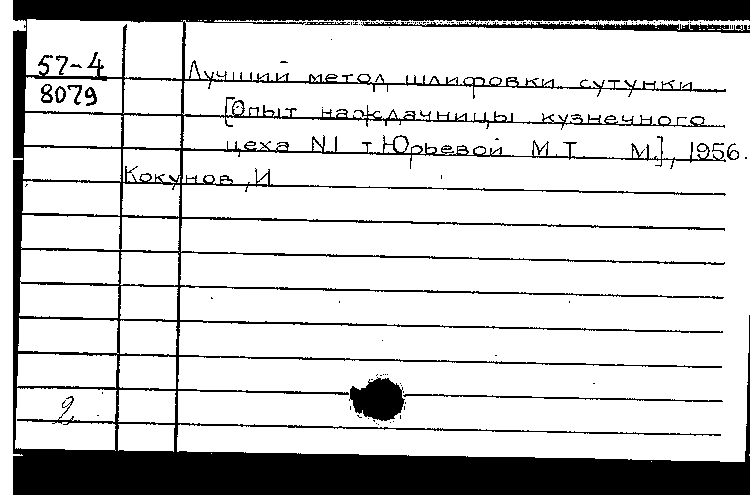 57-4
8079
Лучший метод шлифовки сутунки
[Опыт наждачницы кузнечного
цеха N1 т.Юрьевой М.Т. М.], 1956.
Кокунов, И
2